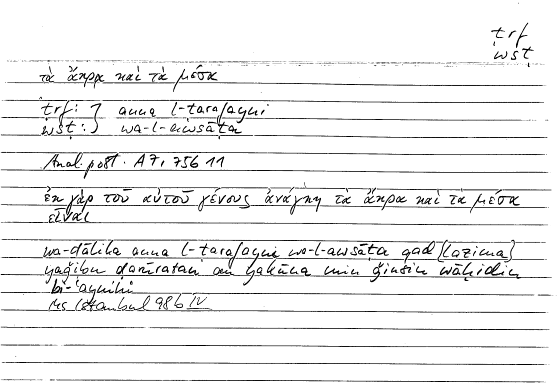 trf
wsṭ
τὰ ἄκρα καὶ τὰ μέσα
trf: } anna l-ṭarafayni
wsṭ: } wa-l-awsāṭa
Anal. post. A 7, 75b 11
ἐκ γὰρ τοῦ αὐτοῦ γένους ἀνάγκη τὰ ἄκρα καὶ τὰ μέσα
εἶναι
wa-ḏālika anna l-ṭarafayni wa-l-awsāṭa qad [lazima]
yaǧibu ḍarūratan an yakūna min ǧinsin wāḥidin
bi-ʿaynihi
Ms Istanbul 98b